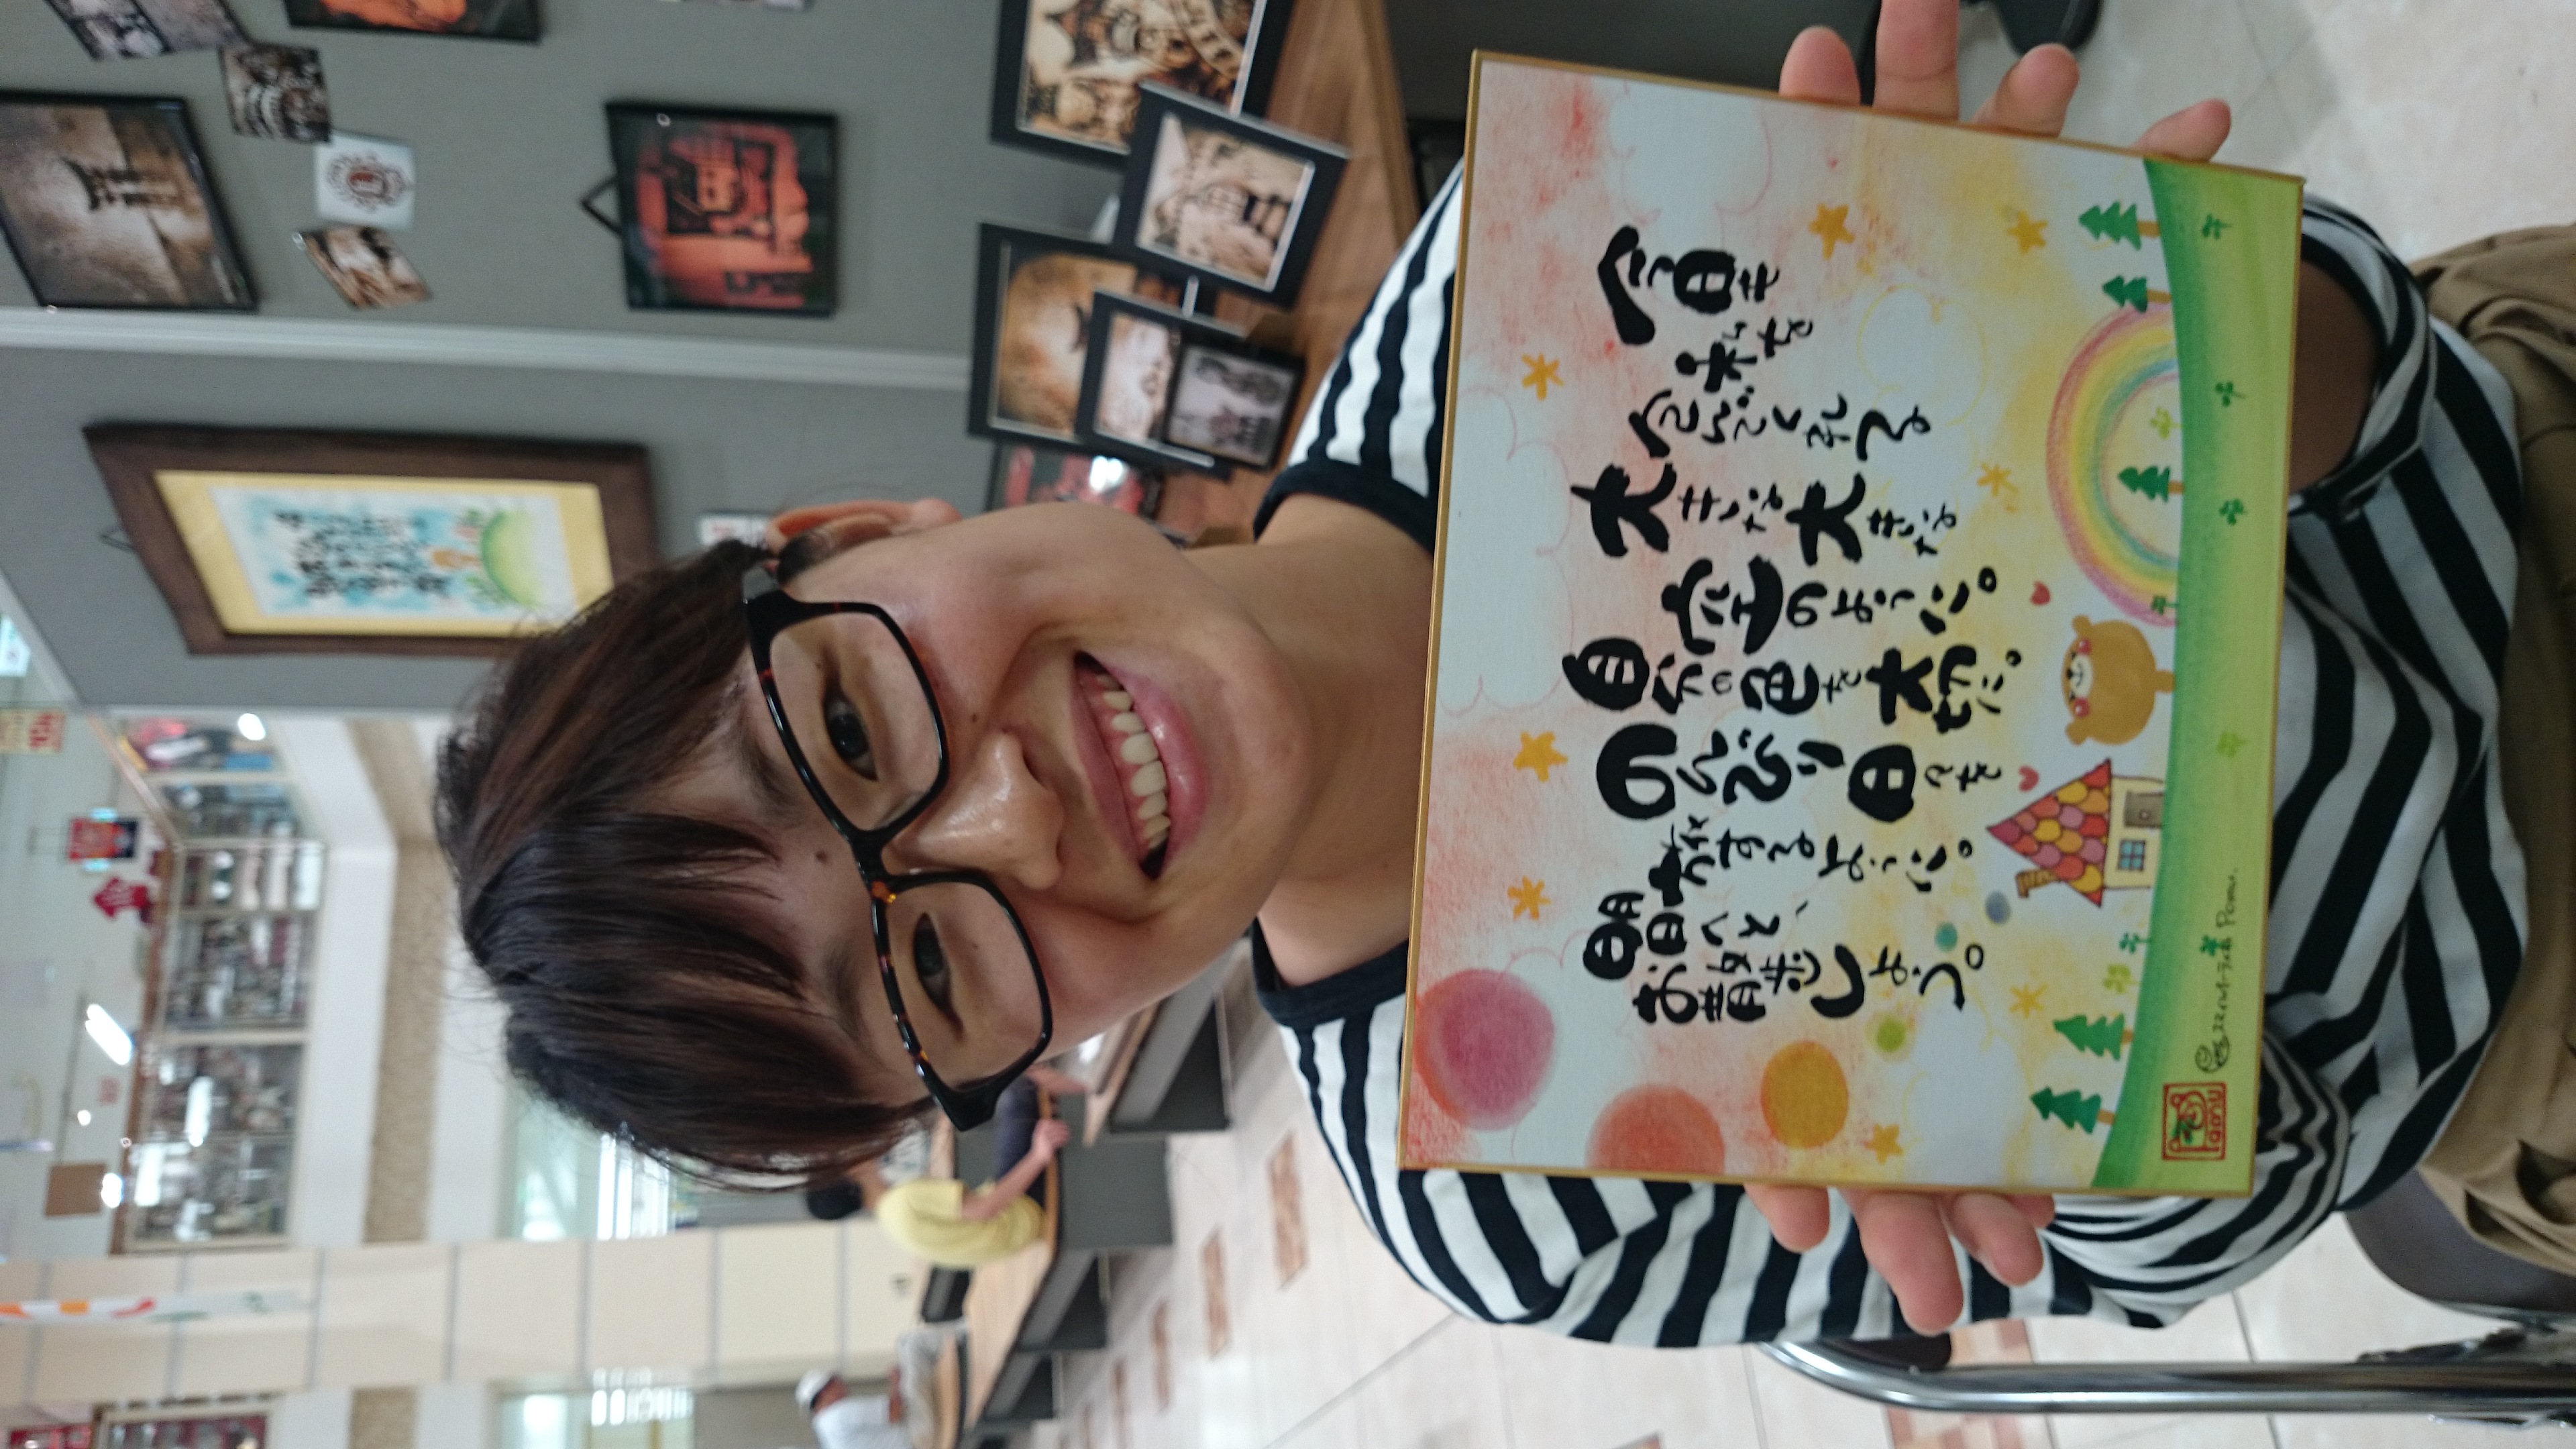 今日も
私を
包んでくれる
大きな大きな
空のように。
自分の色を大切に。
のんびり日々を
旅するように。
明日へと、
お散歩しよう。
Pamu
Pamu.